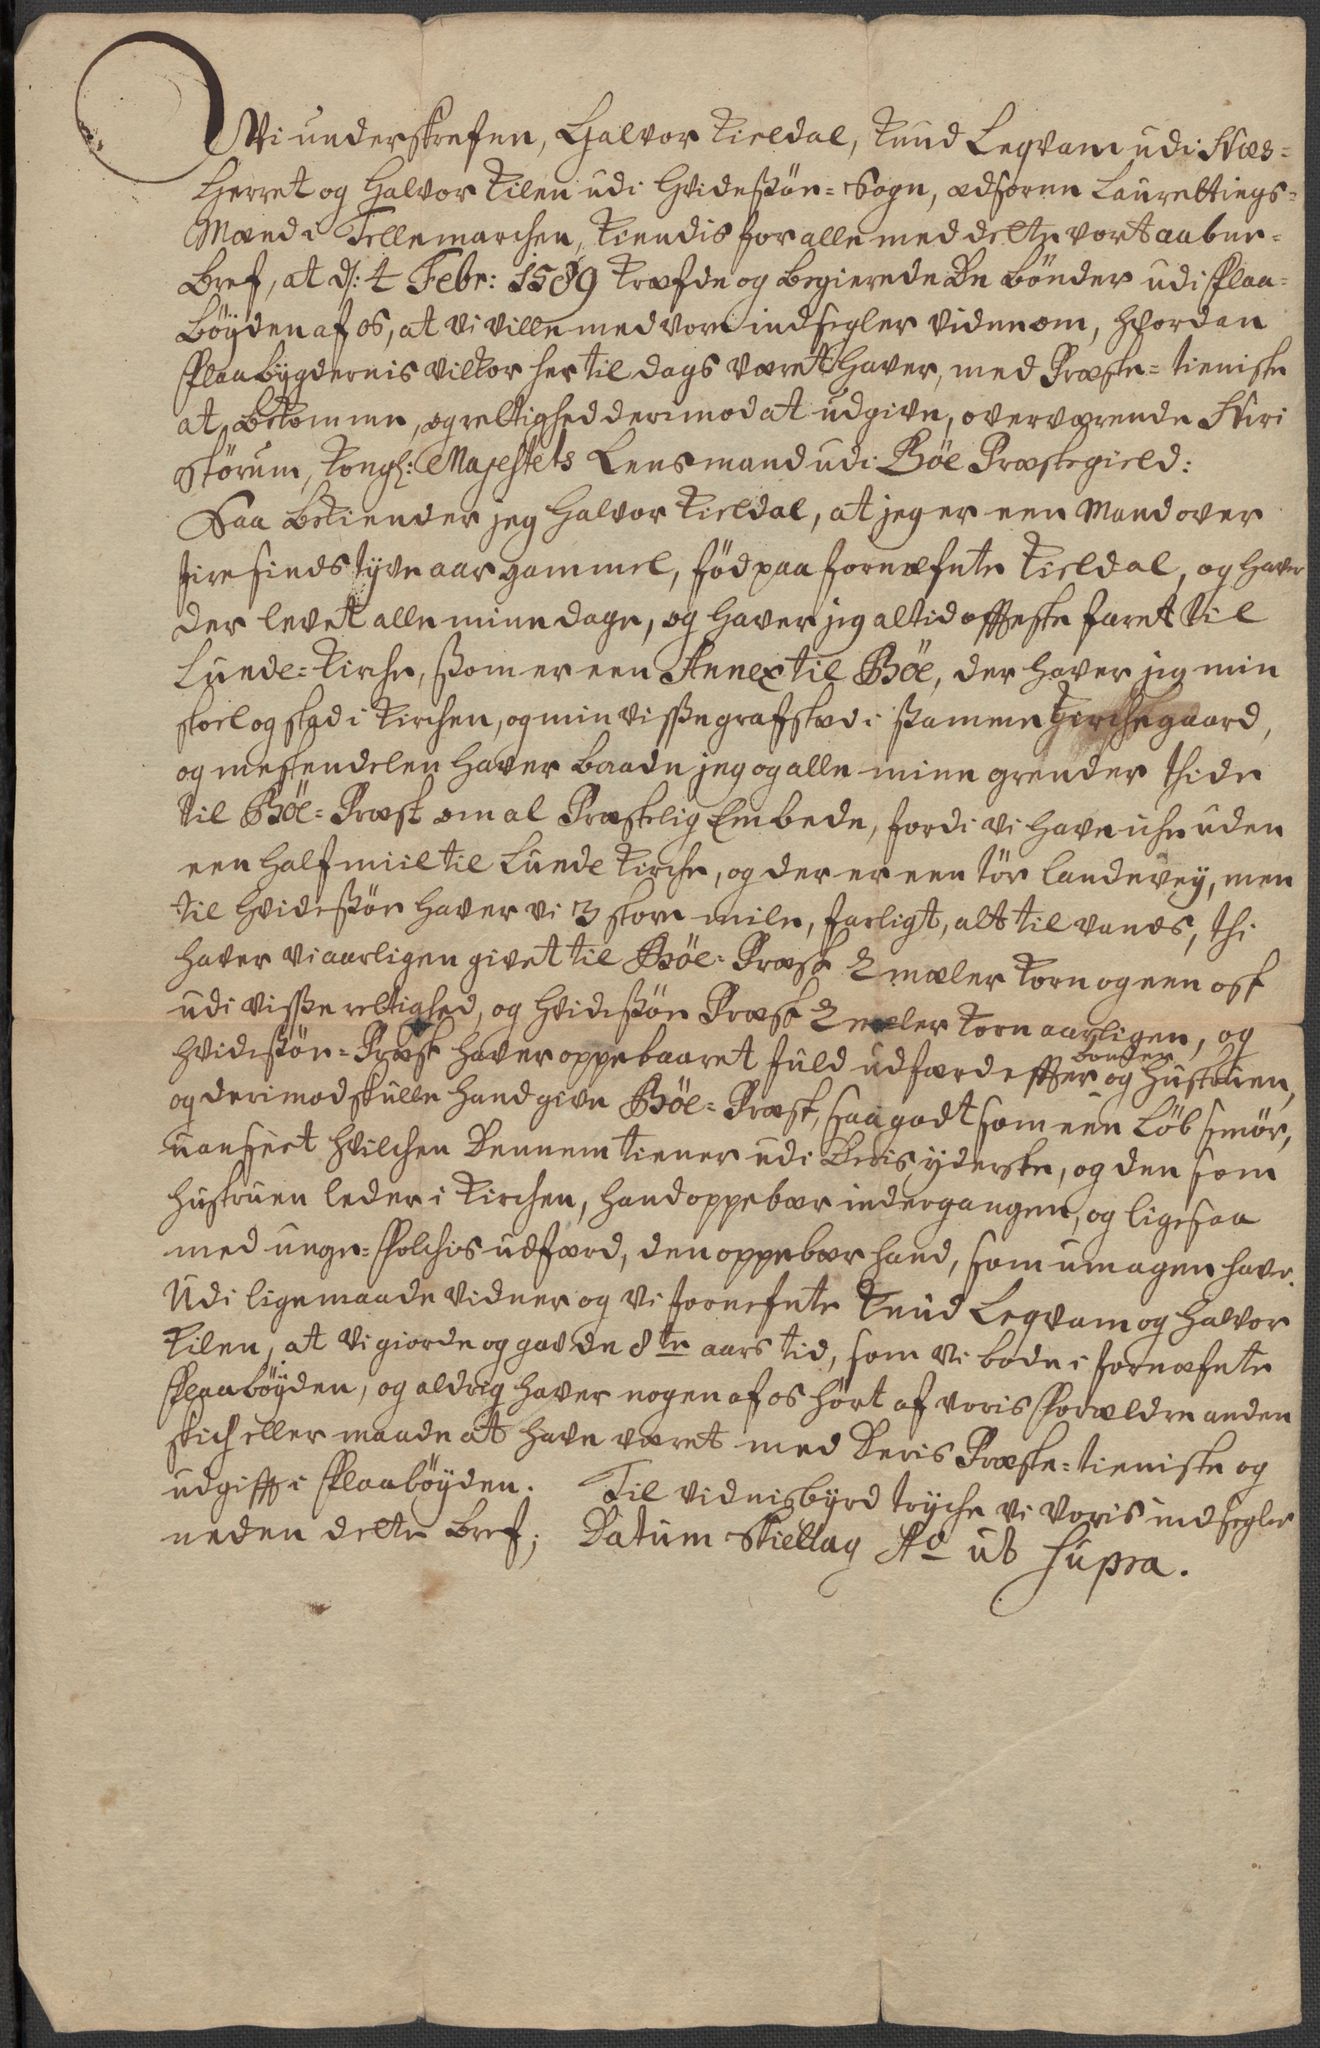 Vi underskrefen, Halvor Kieldal, Knud Legvam udi Næs=
Herret og Halvor Kilen udi Hvideßöe=Sogn, edsoren Laurettings=
Mænd i Tellemarchen, Kiendis for alle med dette vort aabne=
bref, at ds: 4 Febr: 1589 Kræfde og begierede De bönder udi Flaa=
böyden af os, at vi ville med vore indsegler vidne om, hvordan
Flaabygdernis vilkor her til dags været haver, med Præste=tieniste
at bekomme, og rettighed derimod at udgive, overværende
Störum, Kongl: Majestets Lensmand udi Böe Præstegield:
Saa bekiender jeg Halvor Kieldal, at jeg er een Mand over
fire sinds tyve aar gammel, föd paa fornæfnte Kieldal, og haver
der levet alle mine dage, og haver jeg altid offteste faret til
Lunde=Kirche, ßom er een Annex til Böe, der haver jeg min
stoel og sted i Kirchen, og min visse grafsted i ßamme Kirchegaard,
og mestendelen haver baade jeg og alle mine grender thide
til Böe=Præst om al Præstelig Embede, fordi vi have iche uden
een half miil til Lunde Kirche, og der er een tör landevey, men
til Hvideßöe haver vi 3 store mile, farligt, alt til vands, thi
haver vi aarligen givet til Böe=Præst 2 mæler Korn og een ost
udi visse rettighed, og Hvideßöe Præst 2 mæler Korn aarligen, og
Hvideßöe=Præst haver oppebaaret fuld udfærd effter bonden og Hustruen,
og derimod skulle hand give Böe=Præst, saa godt som een Löb smör,
uanseet hvilchen Dennem tiener udi Deris yderste, og den som
Hustruen leder i Kirchen, hand oppebær indergangen, og ligesaa
med unge=Folchis udfærd, den oppebær hand, som umagen haver.
Udi ligemaade vidner og vi fornefnte Knud Legvam og Halvor
Kilen, at vi giorde og gav de 8te aars tid, som vi bode i fornæfnte
Flaaböyden, og aldrig haver nogen af os hört af voris Forældre anden
skich eller maade at have været med Deris Præste=tieniste og
udgifft i Flaaböyden. Til vidnisbyrd tryche vi voris indsegler
neden dette bref; Datum Skiellag Ao ut supra.